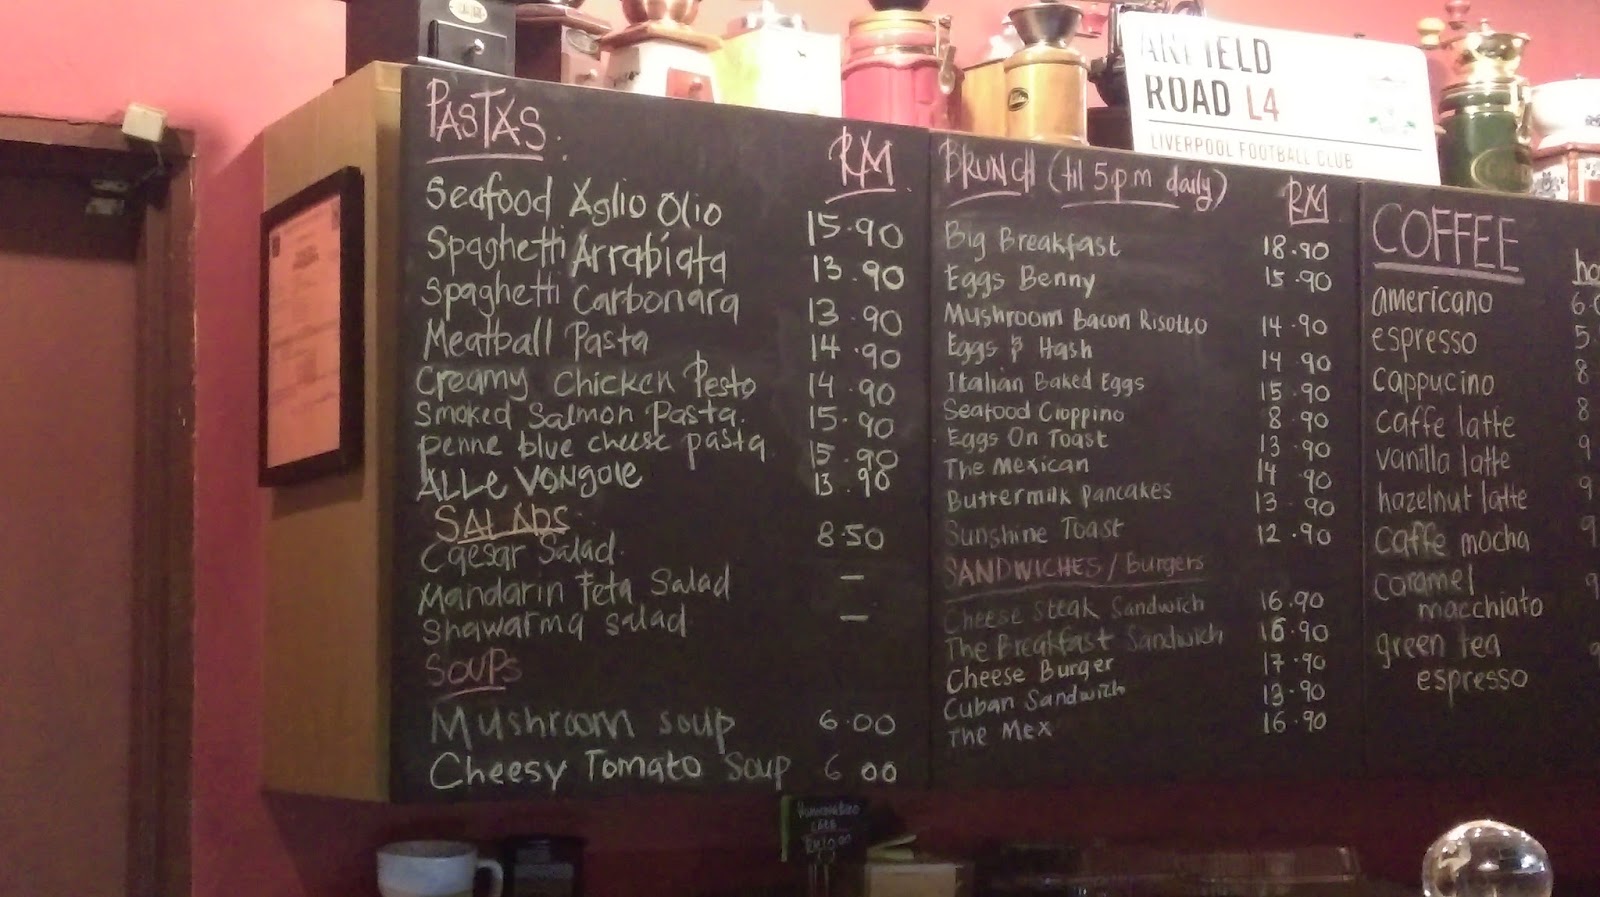 ANFIELD
ROAD L4
LIVERPOOL FOOTBALL CLUB
PASTAS. RM
Seafood Aglio Olio 15.90
Spaghetti Arrabiata 13.90
Spaghetti Carbonara 13.90
Meatball Pasta 14.90
Creamy Chicken Pesto 14.90
Smoked Salmon Pasta. 15.90
penne blue cheese pasta 15.90
ALLE VONGOLE 13.90
SALADS
Caesar Salad 8.50
Mandarin Feta Salad —
Shawarma Salad —
SOUPS
Mushroom soup 6.00
Cheesy Tomato Soup 6 00
BRUNCH (til 5.p.m daily) RM
Big Breakfast 18.90
Eggs Benny 15.90
Mushroom Bacon Risotto 14.90
Eggs & Hash 14.90
Italian Baked Eggs 15.90
Seafood Cioppino 8.90
Eggs On Toast 13.90
The Mexican 14.90
Buttermilk Pancakes 13.90
Sunshine Toast 12.90
SANDWICHES / Burgers
Cheese Steak Sandwich 16.90
The Breakfast Sandwich 16.90
Cheese Burger 17.90
Cuban Sandwich 13.90
The Mex 16.90
COFFEE
americano
espresso 5.
cappucino 8
caffe latte 8
vanilla latte 9
hazelnut latte 9
caffe mocha 9
caramel
macchiato
green tea
espresso